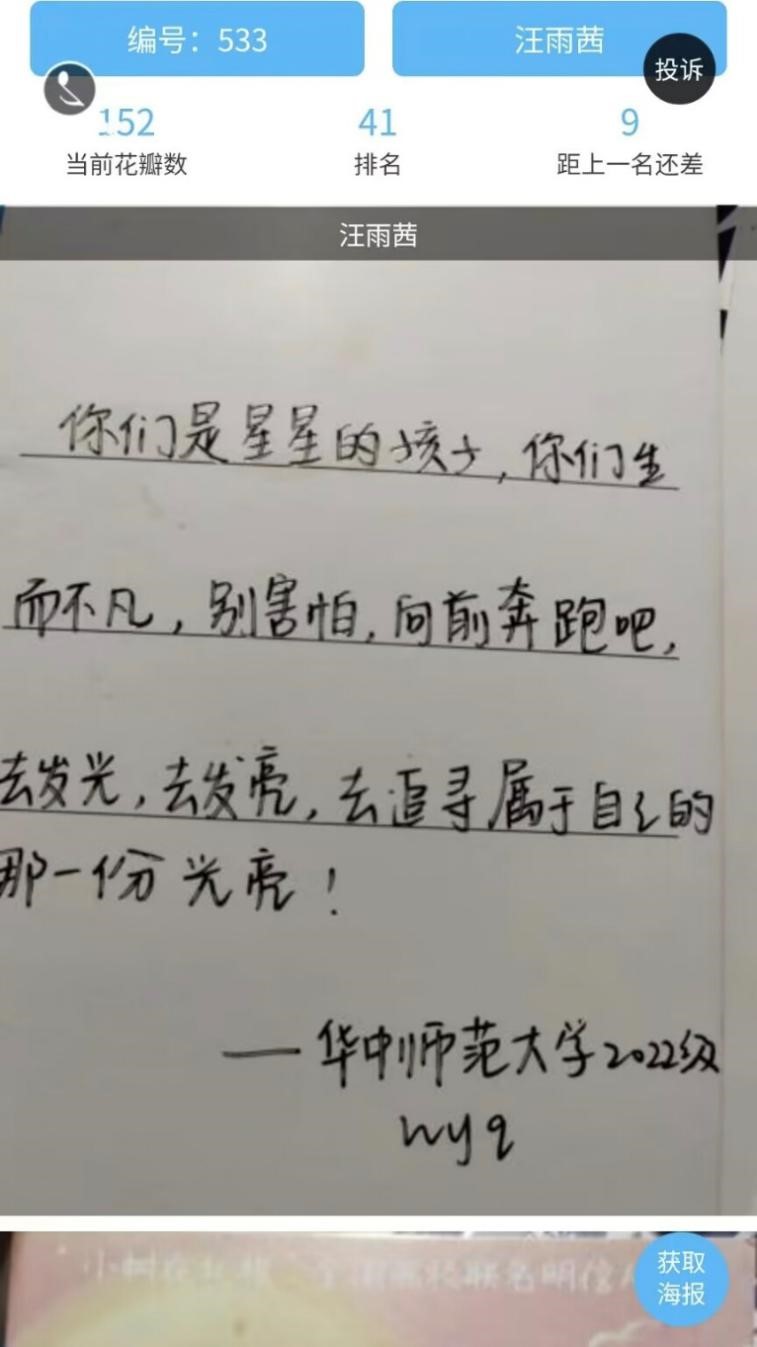 编号：533
汪雨茜
投诉
152
41
9
当前花瓣数
排名
距上一名还差
汪雨茜
你们是星星的孩子，你们生
而不凡，别害怕，向前奔跑吧，
去发光，去发亮，去追寻属于自己的
那一份光亮！
——华中师范大学2022级
wyq
小树
联名明信
获取
海报